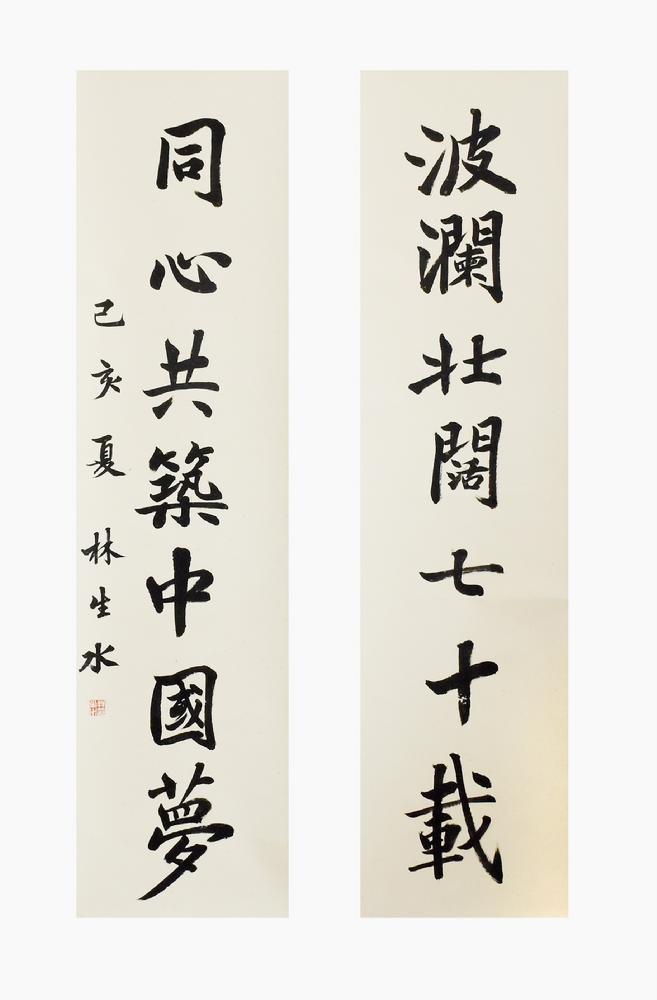 波瀾壯闊七十載
同心共築中國夢
己亥夏 林生水